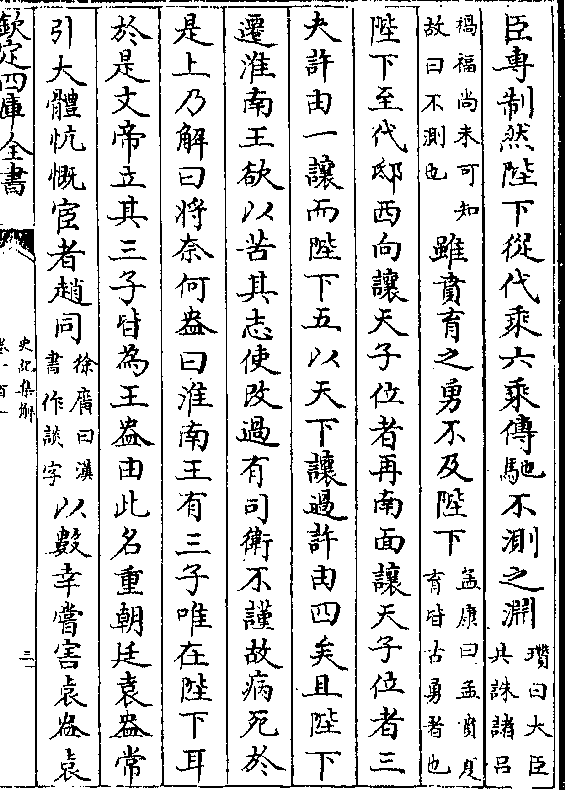 臣專制然陛下從代乘六乘傳馳不測之淵瓚曰大臣共誅諸吕
禍福尚未可知故曰不測也雖賁育之勇不及陛下孟康曰孟賁夏育皆古勇者也
陛下至代邸西向讓天子位者再南面讓天子位者三
夫許由一讓而陛下五以天下讓過許由四矣且陛下
遷淮南王欲以苦其志使改過有司衛不謹故病死於
是上乃解曰將奈何盎曰淮南王有三子唯在陛下耳
於是文帝立其三子皆為王盎由此名重朝廷袁盎常
引大體忼慨宦者趙同徐廣曰漢書作談字以數幸嘗害袁盎袁
欽定四庫全書
史記集解
卷一百一
三